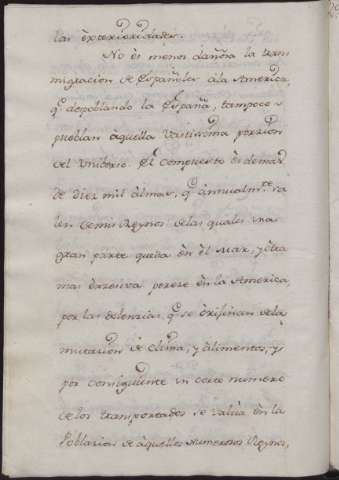 las exterioridades.
No es menos dañosa la trans
migracion de Españoles â la America
q.e depoblando la España, tampoco
pueblan aquella vastissima porzion
del Universo. El compuesto es de mas
de diez mil almas, q.e annualm.te sa
len de mis Reynos de las quales una
gran parte queda en el Mar, y otra
mas exzesiva perese en la America
por las dolenzias, q.e se orijinan de la
mutacion de clima, y alimentos, y
por consiguiente un corto numero
de los transportados se valúa en la
Poblazion de aquellos numerosos Reynos,